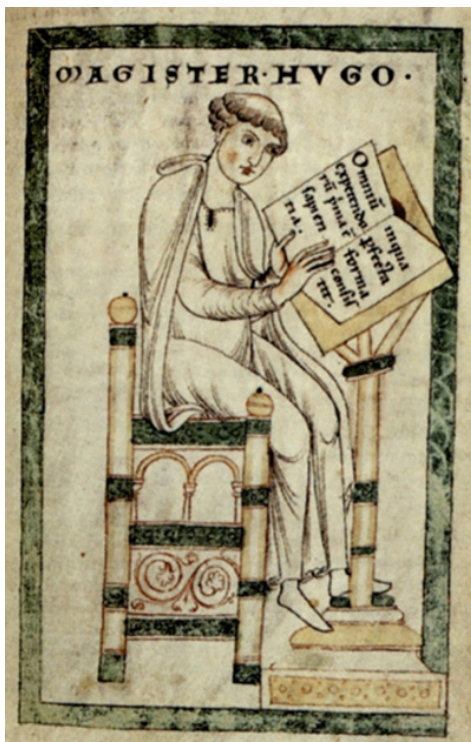 MAGISTER·HVGO·
Omniū
expetendo
rū pͥma ē
sapien
tia:
inqua
ꝑfecta
forma
consis
tit.